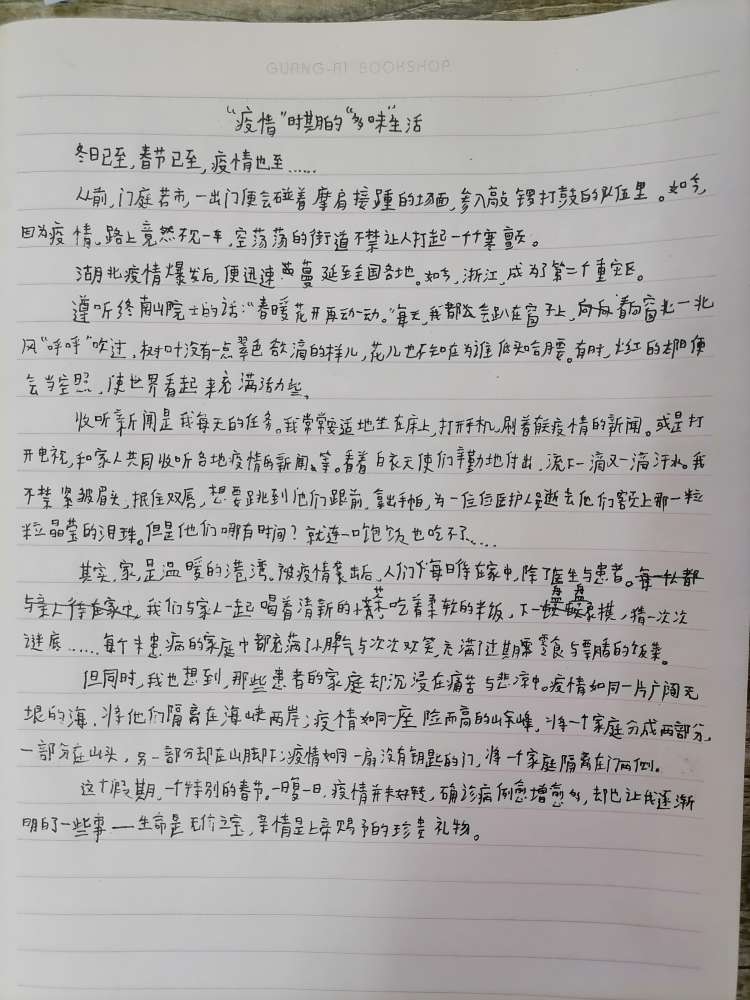 GUANG-RI BOOKSHOP
“疫情”时期的“多味”生活
冬日已至，春节已至，疫情也至……
从前，门庭若市，一出门便会碰着摩肩接踵的场面，参入敲锣打鼓的队伍里。如今，
因为疫情，路上竟然不见一车，空荡荡的街道不禁让人打起一个个寒颤。
湖北疫情爆发后，便迅速蔓延至全国各地。如今，浙江，成为了第二个重灾区。
遵听终南山院士的话：“春暖花开再动一动。”每天，我都会趴在窗子上，向窗外
风“呼呼”吹过，树叶没有一点翠色欲滴的样儿，花儿也不知在为谁低知哈腰。有时，火红的太阳便
会当空照，使世界看起来充满活力些。
收听新闻是我每天的任务。我常常安适地坐在床上，打开手机，刷着有关疫情的新闻。或是打
开电视，和家人共同收听各地疫情的新闻、等。看着白衣天使们辛勤地付出，流下一滴又一滴汗水。我
不禁紧皱眉头，抿住双唇，想要跳到他们跟前，拿出手帕，为一位位医护人员逝去他们额上那一粒
粒晶莹的泪珠。但是他们哪有时间？就连一口饱饭也吃不了……
其实，家，是温暖的港湾。被疫情袭出后，人们每日待在家中，除了医生与患者。
我们与家人一起喝着清新的小茶，吃着柔软的米饭，下一盘盘象棋，猜一次次
谜底……每个未患病的家庭中都充满了小脾气与次次欢笑，充满了过期零食与飘香的饭菜。
但同时，我也想到，那些患者的家庭却沉浸在痛苦与悲凉中。疫情如同一片广阔无
垠的海，将他们隔离在海峡两岸；疫情如同一座险而高的山峰，将一个家庭分成两部分，
一部分在山头，另一部分却在山脚下；疫情如同一扇没有钥匙的门，将一个家庭隔离在门两侧。
这个假期，一个特别的春节。一日复一日，疫情并未好转，确诊病例愈增愈多，却也让我逐渐
明白了一些事——生命是无价之宝，亲情是上帝赐予的珍贵礼物。